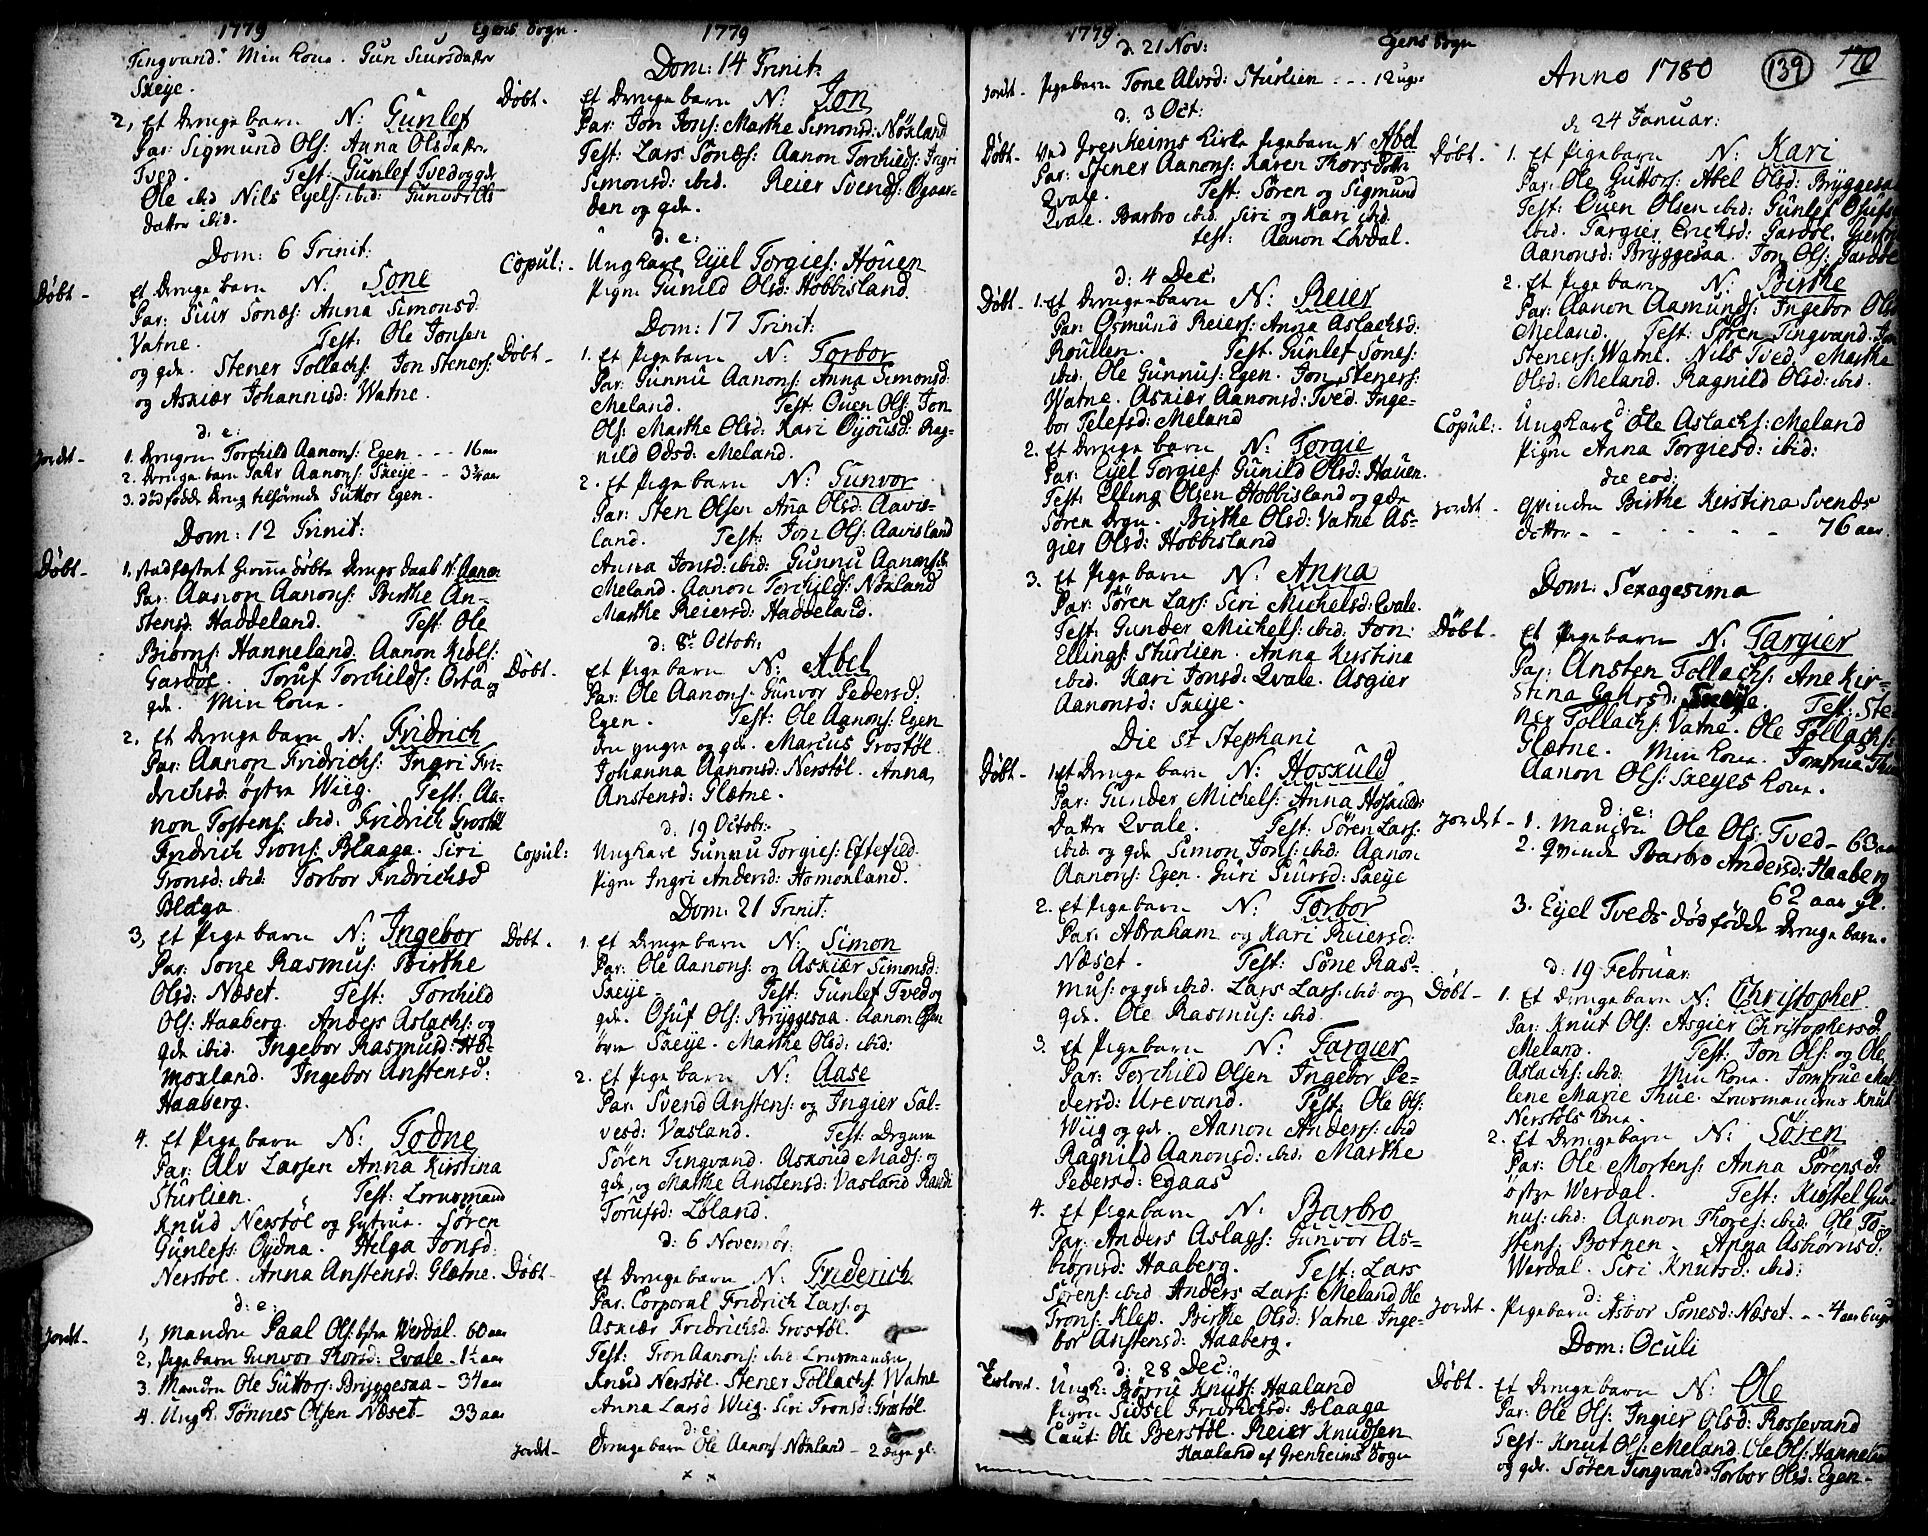 1779 Egens Sogn.
Tingvand. Min Kone. Gun Siursdatter
Skeye.
2, et Drenge barn N: Gunlef
Par: Sigmund Ols: Anna Olsdatter
Tved. Test: Gunlef Tved og gde
Ole ibid Nils Eyels: ibid: Gunvor Ols
datter ibid.
Dom: 6 Trinit:
Døbt - et Drenge barn N: Sone
Par: Siur Sones: Anna Simonsd:
Vatne. Test: Ole Jonsen
og gde. Stener Tollachs: Jon Steners:
og Askiær Johannisd: Watne.
d: e:
Jordt - 1. Drengen Torchild Aanons: Egen - - - 16 aar
2. Drenge barn Aanons: Skeye - - 3 3/4 aar
3. dødfødde Dreng Guttor Egen.
Dom: 12 Trinit:
Døbt - 1. stadfæstet hiemme døbte Drengs Daab N: Aanon
Par: Aanon Aanons: Birthe An-
stensd: Haddeland. Test: Ole
Biørns: Hanneland. Aanon Kidls:
Gardøe. Toruf Torchilds: Orta og
gde. Min Kone.
2, et Drenge barn N: Fridrich
Par: Aanon Fridrichs: Ingri Fri-
drichsd: østre Wiig. Test: Aa-
non Tostens: ibid: Fridrich Grostøl
Fridrich Trons: Blaaga. Siri
Tronsd: ibid: Torbor Fridrichsd
Blaga.
3, et Pige barn N: Ingebor
Par: Sone Rasmus: Birthe
Olsd: Næset. Test: Torchild
Ols: Haaberg. Anders Aslachs: og
gde ibid. Ingebor Rasmusd: Ho-
moxland. Ingebor Anstensd:
Haaberg.
4. et Pige barn N: Todne
Par: Alv Larsen Anna Kirstina
Sturlien. Test: Lensmand
Knud Nerstøl og Hustrue. Søren
Gunlefs: Øydna. Helga Jonsd:
Nerstøl. Anna Anstensd: Glætne.
d: e:
Jordt - 1, Manden Paal Ols: østre Werdal. 60 aar
2, Pige barn Gunvor Thorsd: Qvale - 1 1/2 aar
3. Manden Ole Guttors: Bryggesaa - 34 aar
4. Ungk: Tønnes Olsen Næset - 33 aar
1779
Dom: 14 Trinit:
Døbt - Et Drenge barn N: Jon
Par: Jon Jons: Marthe Simonsd: Nøxland
Test: Lars Sones: Aanon Torchilds: Ingri
Simonsd: ibid. Reier Svends: Øgaar-
den og gde.
d: e:
Copul: - Ungkarl Eyel Torgies: Houen
Pigen Gunild Olsd: Hobbisland.
Dom: 17 Trinit:
Døbt - 1. Et Pige barn N: Torbor
Par: Gunnu Aanons: Anna Simonsd:
Meland. Test: Ouen Ols: Jon
Ols: Marthe Olsd: Kari Øyousd: Rag-
nild Odsd: Meland.
2. et Pige barn N: Gunvor
Par: Sten Olsen Ana Olsd: Aavis-
land. Test: Jon Ols: Aavisland
Anna Jonsd: ibid: Gunnu Aanons:
Meland. Aanon Torchilds: Nøxland
Marthe Reiersd: Haddeland.
d: 8t Octobr:
Døbt. Et Pige barn N: Abel
Par: Ole Aanons: Gunvor Pedersd:
Egen. Test: Ole Aanons: Egen
den yngre og gde. Marcus Grostøl.
Johanna Aanonsd: Nerstøl. Anna
Anstensd: Glætne.
d: 19 Octobr:
Copul: Ungkarl Gunnu Torgies: Eftefield.
Pigen Ingri Andersd: Homoxland.
Dom: 21 Trinit:
Døbt. 1. Et Drenge barn N: Simon
Par: Ole Aanons: og Askiær Simonsd:
Skeije - Test: Gunlef Tved og
gde. Osuf Ols: Bryggesaa. Aanon Ols
øvre Skeije. Marthe Olsd: ibid:
2. et Pige barn N: Aase
Par: Svend Anstens: og Ingier Sal-
vesd: Vasland. Test: Degnen
Søren Tingvand. Askoud Mads: og
gde, og Marthe Anstensd: Vasland Randi
Torufsd: Løland.
d: 6 Novembr:
Døbt - Et Drenge barn N: Friderich
Par: Corporal Fridrich Lars: og
Askiær Fridrichsd: Grostøl.
Test: Tron Aanons: ibid Lensmanden
Knud Nerstøl. Stener Tollachs: Watne
Anna Larsd Wiig. Siri Tronsd: Grostøl.
d: e:
Jordt - Drenge barn Ole Aanons: Nøxland - 2 dage gl:
1779 Egens Sogn
d: 21 Nov:
Jordt - Pige barn Tone Alvsd: Sturlien - - - 12 uger
d: 3 Oct:
Døbt - Ved Grenheims Kirke Pige barn N: Abel
Par: Stener Aanons: Karen Thorsdotter
Qvale. Test: Søren og Sigmund
Qvale. Barbro ibid. Siri og Kari ibid.
Test: Aanon Løvdal.
d: 4 Dec:
Døbt. 1. Et Drenge barn N: Reier
Par: Osmund Reiers: Anna Aslachsd:
Roullen. Test: Gunlef Sones:
ibid. Ole Gunnus: Egen. Jon Steners:
Watne. Askiær Aanonsd: Tved. Inge-
bor Telefsd: Meland
2. Et Drenge barn N: Torgie
Par: Eyel Torgies: Gunild Olsd: Hauen.
Test: Elling Olsen Hobbisland og gde
Søren Degn. Birthe Olsd: Vatne As-
gier Olsd: Hobbisland
3. Et Pige barn N: Anna
Par: Søren Lars: Siri Michelsd: Qvale.
Test: Gunder Michels: ibid: Jon
Ellings: Sturlien. Anna Kirstina
ibid. Kari Jonsd: Qvale. Asgier
Aanonsd: Skeije.
Die St Stephani
Døbt - 1. et Drenge barn N: Hoskuld
Par: Gunder Michels: Anna Hoskuld:
datter Qvale. Test: Søren Lars:
ibid. og gde Simon Jons: ibid: Aanon
Aanons: Egen. Guri Siursd: Skeije
2. et Pige barn N: Torbor
Par: Abraham og Kari Reiersd:
Næset. Test: Sone Ras-
mus: og gde ibid. Lars Lars: ibid og
gde. Ole Rasmus: ibid.
3. et Pige barn N: Targier
Par: Torchild Olsen Ingebor Pe-
dersd: Urevand. Test: Ole Ols:
Wiig og gde. Aanon Anders: ibid
Ragnild Aanonsd: ibid: Marthe
Pedersd: Egaas
4. et Pige barn N: Barbro
Par: Anders Aslags: Gunvor As-
biørnsd: Haaberg. Test: Lars
Sørens: ibid Anders Lars: Meland Ole
Trons: Klep. Birthe Olsd: Vatne Inge-
bor Anstensd: Haaberg.
d: 28 Dec:
Ungk: Børrie Knuts: Haaland
Pigen Sidsel Fridrichsd: Blaaga
Caut: Ole Berstøl. Reier Knudsen
Haaland af Grenheims Sogn
Anno 1780 139 170
d: 24 Januar:
Døbt - 1. Et Pige barn N: Kari
Par: Ole Guttors: Abel Olsd: Bryggesaa
Test: Ouen Olsen ibid: Gunlef
ibid. Targier Erichsd: Gardøe.
Aanonsd: Bryggesaa. Jon Ols: Gardøe
2. Et Pige barn N: Birthe
Par: Aanon Aamunds: Ingebor Ols
Meland. Test: Søren Tingvand. Jon
Steners: Watne. Nils Tved. Marthe
Olsd: Meland. Ragnild Olsd: ibid.
d: e:
Copul: - Ungkarl Ole Aslachs: Meland
Pigen Anna Torgiesd: ibid:
die eod:
Jordt - Qvinden Birthe Kirstina Svends
datter - - - - - 76 aar
Dom: Sexagesima
Døbt - Et Pige barn N: Targier
Par: Ansten Tollachs: Ane Kir-
stina Gahrsd: Skeije. Test: Ste
ner Tollachs: Vatne. Ole Tollachs:
Glætne. Min Kone. Jomfrue Thue
Aanon Ols: Skeyes Kone.
d: e:
Jordt - 1. Manden Ole Ols: Tved - 63 aar
2. Qvinde Barbro Andersd: Haaberg
62 aar gl.
3. Eyel Tveds dødfødde Drenge barn.
d: 19 Februar:
Døbt - 1. Et Drenge barn N: Christopher
Par: Knut Ols: Asgier Christophersd:
Meland. Test: Jon Ols: og Ole
Aslachs: ibid: Min Kone. Jomfrue Mal
lene Marie Thue. Lensmandens Knut
Nerstøls Kone.
2. Et Drenge barn N: Søren
Par: Ole Mortens: Anna Sørensd:
østre Werdal. Test: Kiøstel Gun
nus: ibid: Aanon Thores: ibid. Ole To-
stens: Botnen. Anna Asbiørnsd:
Werdal. Siri Knutsd: ibid:
d: e:
Jordt - Pige barn Asbor Sonesd: Næset - - 4 aar 6 uger
Dom: Oculi
Døbt - Et Drenge barn N: Ole
Par: Ole Ols: Ingier Olsd: Rossevand
Test: Knut Ols: Meland. Ole Ols: Hanneland
og gde. Søren Tingvand. Torbor Olsd: Egen -